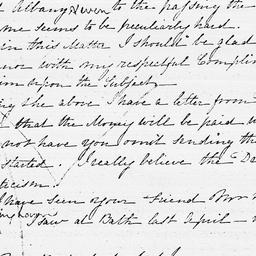 Albany & even to the passing the
me seems to be peculiarly hard.
in this Matter I should be glad
nor with my respectful Complim
im upon the Subject.
the above I have a letter from
that the Money will be paid
not have you omit sending the
started. I really believe the Da
ticism.
I have seen your friend Mr
I saw at Bath last April